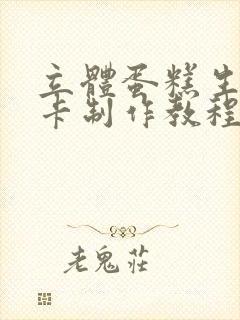 立體蛋糕生
卡制作教程
老鬼莊